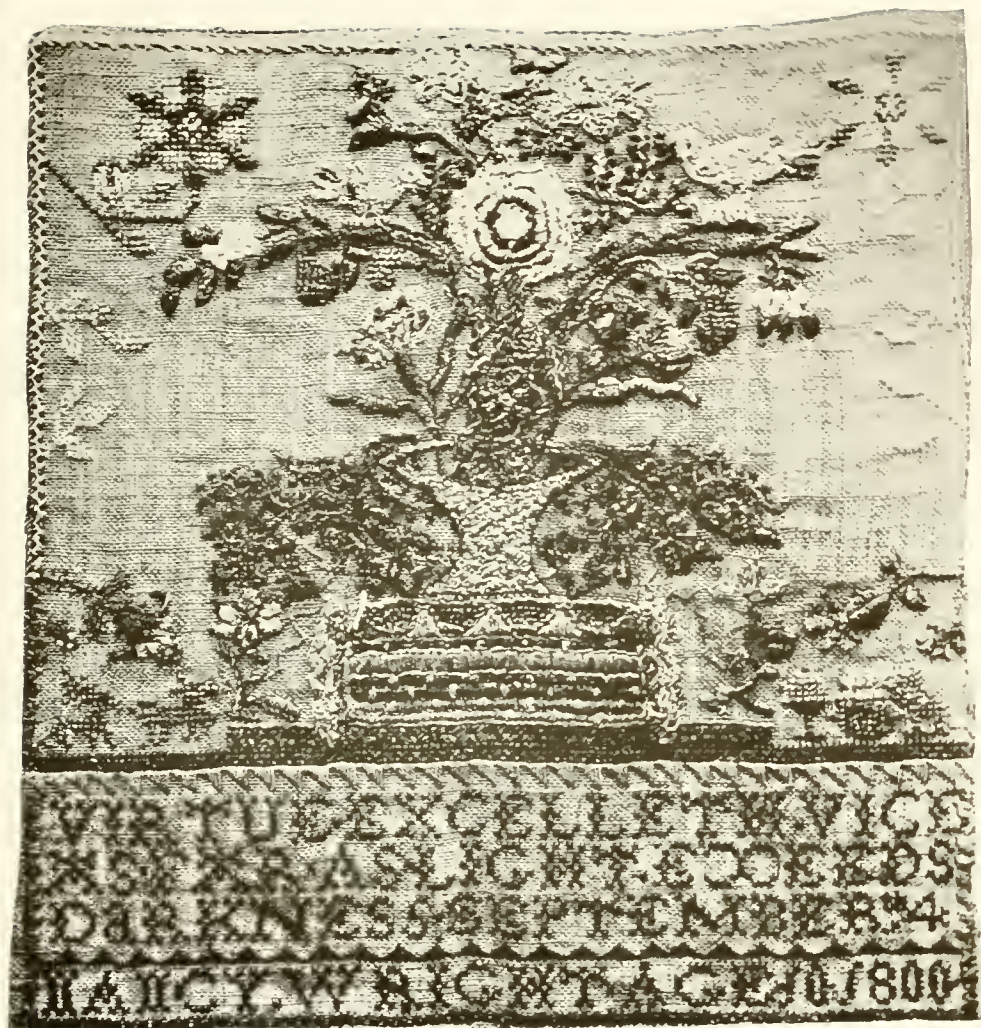 VIRTUE EXCELLETH VICE
AS LIGHT
DARKNESS SEPTEMBER 4
NANCY.WRIGHT AGE 10 1800